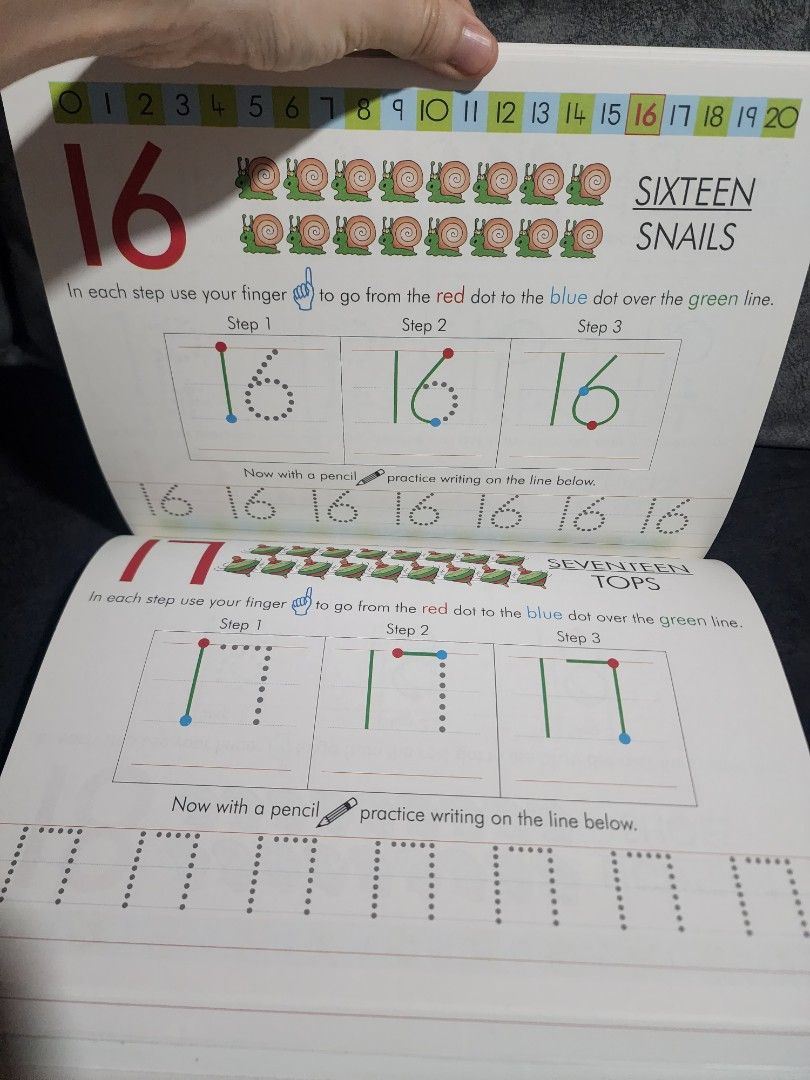 0 1 2 3 4 5 6 7 8 9 10 11 12 13 14 15 16 17 18 19 20
16
SIXTEEN
SNAILS
In each step use your finger to go from the red dot to the blue dot over the green line.
Step 1 Step 2 Step 3
16 16 16
Now with a pencil practice writing on the line below.
16 16 16 16 16 16 16
17
SEVENTEEN
TOPS
In each step use your finger to go from the red dot to the blue dot over the green line.
Step 1 Step 2 Step 3
17 17 17
Now with a pencil practice writing on the line below.
17 17 17 17 17 17 17